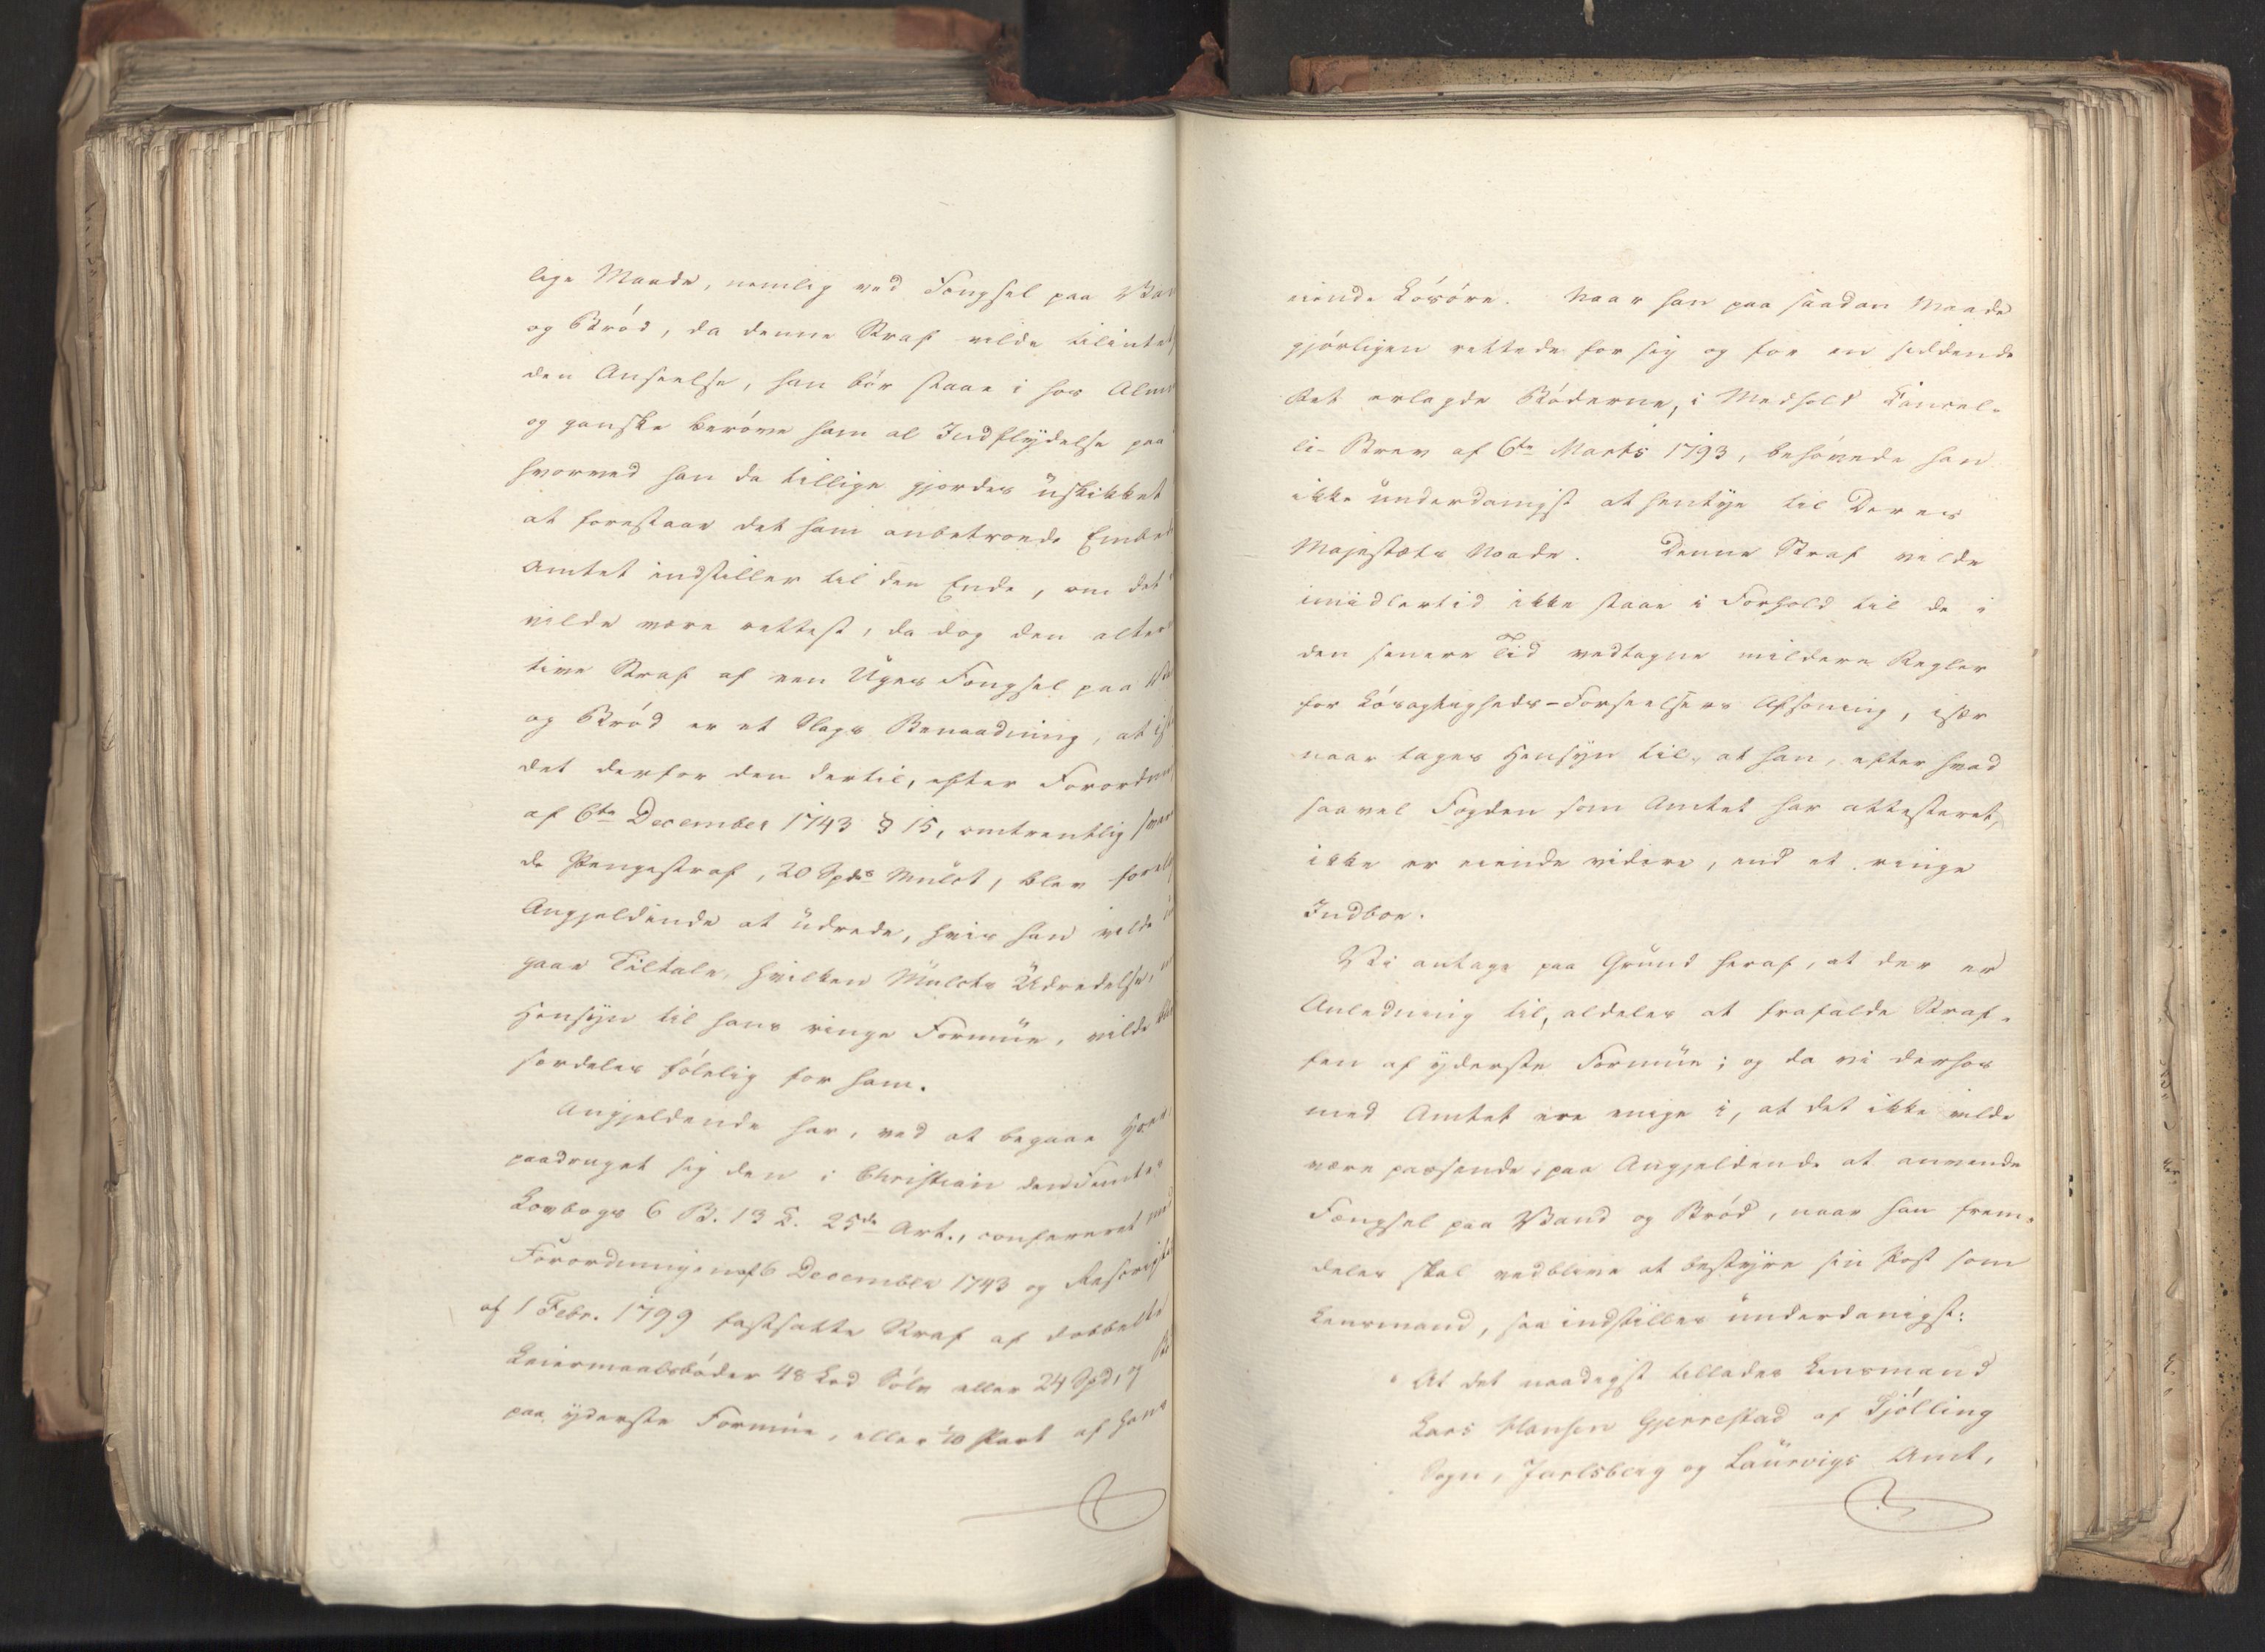 lige Maade, nemlig ved Fængsel paa Van
og Brød, da denne Straf vilde tilintet
den Anseelse, han bør staae i hos Alm
og ganske berøve ham al Indflydelse paa
hvorved han da tillige gjordes uskikket
at forestaae det ham anbetroede Embed
Amtet indstiller til den Ende, om det
vilde være rettest, da dog den alter
tive Straf af een Uges Fængsel paa Va
og Brød er et Slags Benaadning, at
det derfor den dertil, efter Forordn
af 6te December 1743 § 15, omtrentlig svare
de Pengestraf, 20 Spds Mulct, blev forel
Angjeldende at udrede, hvis han vilde
gaae Tiltale, hvilken Mulcts Udredelse,
Hensyn til hans ringe Formue, vilde bli
serdeles følelig for ham.
Angjeldende har, ved at begaae Hoer
paadraget sig den i Christian den Femtes
Lovbogs 6 B. 13 C. 25de Art., confereret med
Forordningen af 6 December 1743 og Rescript
af 1 Febr. 1799 fastsatte Straf af dobbelte
Leiermaalsbøder 48 Lod Sølv eller 24 Spd, og
paa yderste Formue, eller 1/10 Part af hans
eiende Løsøre. Naar han paa saadan Maade
gjørligen rettede for sig og for en siddende
Ret erlagde Bøderne, i Medhold Cancel-
li-Brev af 6te Marts 1793, behøvede han
ikke underdanigst at hentye til Deres
Majestæts Naade. Denne Straf vilde
imidlertid ikke staae i Forhold til de i
den senere Tid vedtagne mildere Regler
for Løsagtigheds-Forseelsers Afsoning, især
naar tages Hensyn til, at han, efter hvad
saavel Fogden som Amtet har attesteret,
ikke er eiende videre, end et ringe
Indboe.
Vi antage paa Grund heraf, at der er
Anledning til, aldeles at frafalde Straf-
fen af yderste Formue; og da vi derhos
med Amtet ere enige i, at det ikke vilde
være passende, paa Angjeldende at anvende
Fængsel paa Vand og Brød, naar han frem-
deles skal vedblive at bestyre sin Post som
Lensmand, saa indstilles underdanigst:
At det naadigst tillades Lensmand
Lars Hansen Gjerrestad af Tjølling
Sogn, Jarlsberg og Laurvigs Amt,